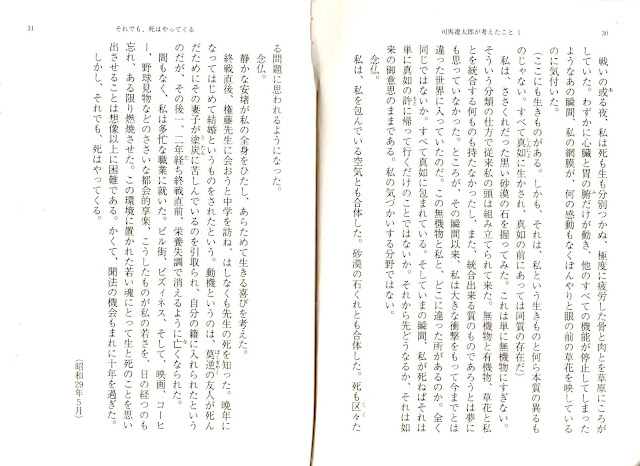 司馬遼太郎が考えたこと 1
30
戦いの或る夜、私は死も生も分別つかぬ、極度に疲労した骨と肉とを草原にころが
していた。わずかに心臓と胃の腑だけが動き、他のすべての機能が停止してしまった
ようなあの瞬間、私の網膜が、何の感動もなくぼんやりと眼の前の草花を映している
のに気付いた。
(ここにも生きものがある。しかも、それは、私という生きものと何ら本質の異るも
のじゃない。すべて真如に生かされ、真如の前にあっては同質の存在だ)
私は、ささくれだった黒い砂漠の石を握ってみた。これは単に無機物にすぎない。
そういう分類の仕方で従来私の頭は組み立てられて来た。無機物と有機物、草花と私
とを統合する何ものも持たなかったし、また、統合出来る質のものであろうとは夢に
も思っていなかった。ところが、その瞬間以来、私は大きな衝撃をもって今までとは
違った世界に入っていたのだ。この無機物と私と、どこに違った所があるのか。全く
同じではないか。すべて真如に包まれている。そしていまの瞬間、私が死ねばそれは
単に真如の許に帰って行くだけのことではないか。それから先どうなるか、それは如
来の御意思のままである。私の気づかいする分野ではない。
念仏。
私は、私を包んでいる空気とも合体した。砂漠の石くれとも合体した。死も区々た
それでも、死はやってくる
31
る問題に思われるようになった。
念仏。
静かな安堵が私の全身をひたし、あらためて生きる喜びを考えた。
終戦直後、権藤先生に会おうと中学を訪ね、はしなくも先生の死を知った。晩年に
なってはじめて結婚というものをされたという。動機というのは、莫逆の友人が死ん
だためにその妻子が塗炭に苦しんでいるのを引取られ、自分の籍に入れられたという
のだが、その後一、二年経ち終戦直前、栄養失調で消えるように亡くなられた。
間もなく、私は多忙な職業に就いた。ビル街、ビズィネス、そして、映画、コーヒ
ー、野球見物などのささいな都会的享楽、こうしたものが私の若さを、日の経つのも
忘れ、ある限り燃焼させた。この環境に置かれた若い魂にとって生と死のことを思い
出させることは想像以上に困難である。かくて、聞法の機会もまれに十年を過ぎた。
しかし、それでも、死はやってくる。
(昭和29年5月)